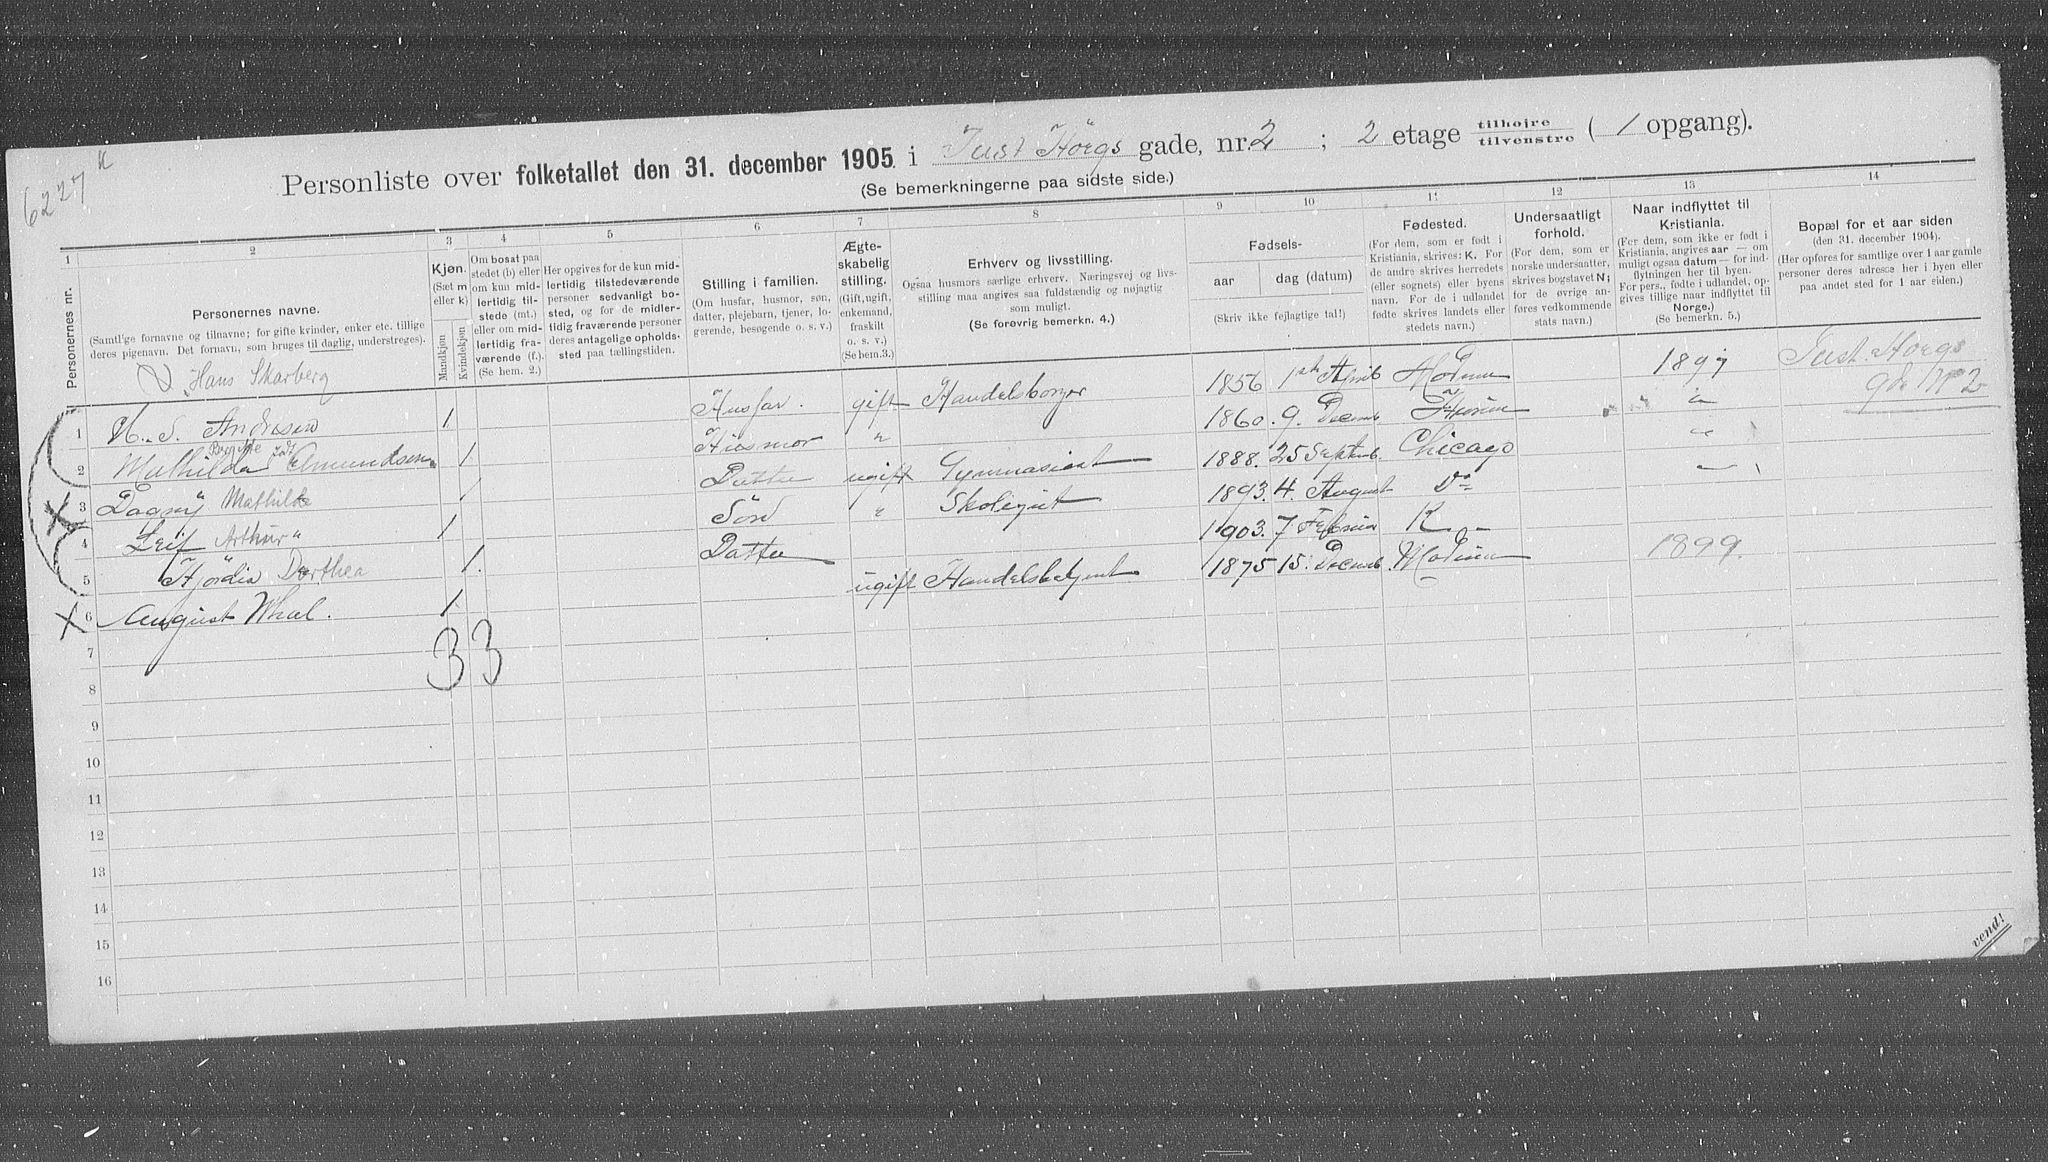 6227 K
Personliste over folketallet den 31. december 1905 i Just Högs gade, nr. 2 ; 2 etage tilhøire / tilvenstre ( 1 opgang).
(Se bemerkningerne paa sidste side.)
1 2 3 4 5 6 7 8 9 10 11 12 13 14
Personernes nr.
Personernes navne.
(Samtlige fornavne og tilnavne; for gifte kvinder, enker etc. tillige
deres pigenavn. Det fornavn, som bruges til daglig, understreges).
Kjøn.
(Sæt m
eller k)
Mandkjøn
Kvindekjøn
Om bosat paa
stedet (b) eller
om kun mid-
lertidig til-
stede (mt.)
eller om mid-
lertidig fra-
værende (f.)
(Se bem. 2.)
Her opgives for de kun mid-
lertidig tilstedeværende
personer sedvanligt bo-
sted, og for de midler-
tidig fraværende personer
deres antagelige opholds-
sted paa tællingstiden.
Stilling i familien.
(Om husfar, husmor, søn,
datter, plejebarn, tjener, lo-
gerende, besøgende o. s. v.)
Ægte-
skabelig
stilling.
(Gift, ugift,
enkemand,
fraskilt
o. s. v.)
(Se bem. 3.)
Erhverv og livsstilling.
Ogsaa husmors særlige erhverv. Næringsvej og livs-
stilling maa angives saa fuldstændig og nøjagtig
som muligt.
(Se forøvrig bemerkn. 4.)
Fødsels-
aar dag (datum)
(Skriv ikke fejlagtige tal!)
Fødested.
(For dem, som er født i
Kristiania, skrives: K. For
de andre skrives herredets
(eller sognets) eller byens
navn. For de i udlandet
fødte skrives landets eller
stedets navn.)
Undersaatligt
forhold.
(For dem, som er
norske undersaatter,
skrives bogstavet N;
for de øvrige an-
føres vedkommende
stats navn.)
Naar indflyttet til
Kristiania.
(For dem, som ikke er født i
Kristiania, angives aar — om
muligt ogsaa datum — for ind-
flytningen her til byen.
For pers., fødte i udlandet, op-
gives tillige naar indflyttet til
Norge.)
(Se bemerkn. 5.)
Bopæl for et aar siden
(den 31. december 1904).
(Her opføres for samtlige over 1 aar gamle
personer deres adresse her i byen eller
paa andet sted for 1 aar siden.)
Hans Skarberg
1 H. S. Andresen 1 Husfar. gift Handelsborger 1856 1ste April Modum 1897 Just Högs gde No 2
2 Mathilda Birgitte født Amundsen 1 Husmor " 1860. 9. Decemb "
3 Dagny Mathilde 1 Datter ugift Gymnasiast 1888. 25 Septemb. Chicago "
4 Leif Arthur " 1 Sön " Skoligut 1893. 4. August Do
5 Hjördis Dorthea 1. Datter 1903. 7. Februar K.
6 August Whal. 1 ugift Handelsbetjent 1875 15. Decemb. Modum 1899.
3 3
7
8
9
10
11
12
13
14
15
16
vend!